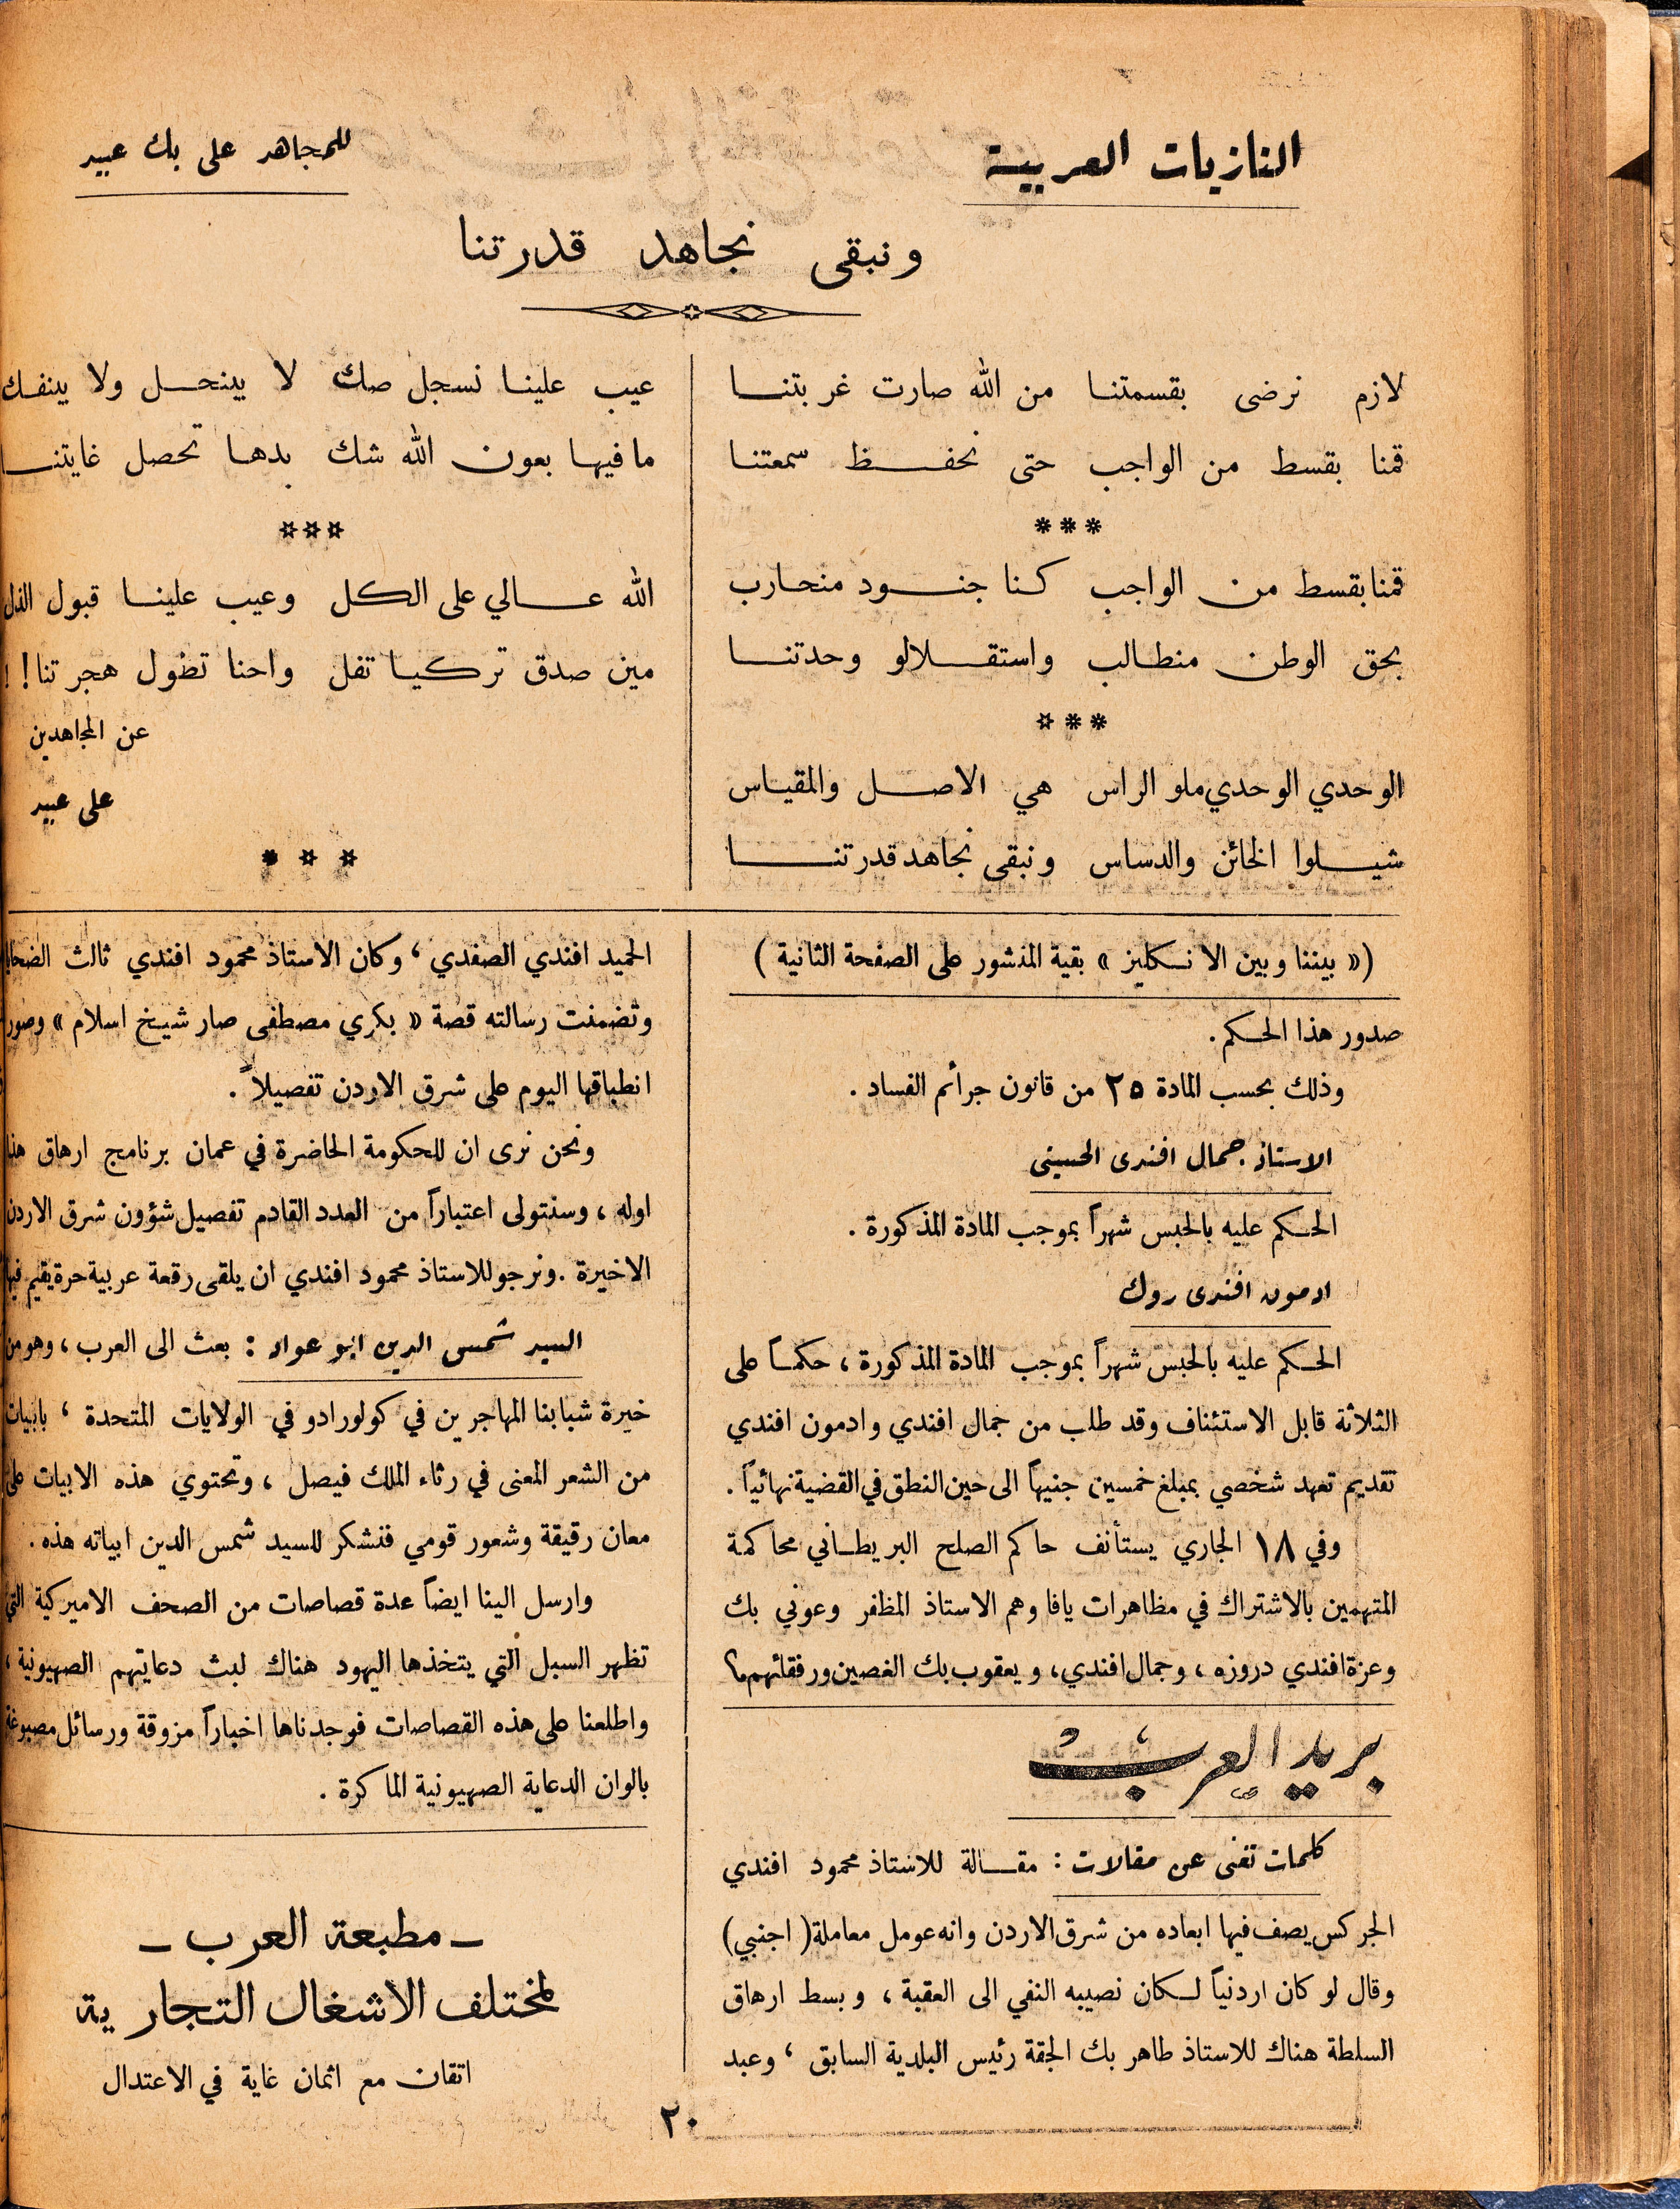 النازيات العربية
للمجاهد علي بك عبيد
ونبقى نجاهد قدرتنا
لازم نرضى بقسمتنا من الله صارت غربتنا
قمنا بقسط من الواجب حتى نحفظ سمعتنا
***
قمنا بقسط من الواجب كنا جنود منحارب
بحق الوطن منطالب واستقلالو وحدتنا
***
الوحدي الوحدي ملو الراس هي الاصل والمقياس
شيلوا الخائن والدساس ونبقى نجاهد قدرتنا
عيب علينا نسجل صك لا بينحل ولا بينفك
مافيها بعون الله شك بدها تحصل غايتنا
***
الله عالي على الكل وعيب علينا قبول الذل
مين صدق تركيا تفل واحنا تطول هجرتنا!!
عن المجاهدين
علي عبيد
* * *
(« بيننا وبين الانكليز » بقية المنشور على الصفحة الثانية )
صدور هذا الحكم.
وذلك بحسب المادة ٢٥ من قانون جرائم الفساد .
الاستاذ جمال افندي الحسيني
الحكم عليه بالحبس شهراً بموجب المادة المذكورة .
ادمون افندي روك
الحكم عليه بالحبس شهراً بموجب المادة المذكورة ، حكماً على
الثلاثة قابل الاستئناف وقد طلب من جمال افندي وادمون افندي
تقديم تعهد شخصي بمبلغ خمسين جنيهاً الى حين النطق في القضية نهائياً .
وفي ١٨ الجاري يستأنف حاكم الصلح البريطاني محاكمة
المتهمين بالاشتراك في مظاهرات يافا وهم الاستاذ المظفر وعوني بك
وعزة افندي دروزه ، وجمال افندي، ويعقوب بك الغصين ورفقائهم؟
بريد العرب
كلمات تغني عن مقالات : مقالة للاستاذ محمود افندي
الجركس يصف فيها ابعاده من شرق الاردن وانه عومل معاملة ( اجنبي )
وقال لو كان اردنياً لكان نصيبه النفي الى العقبة ، وبسط ارهاق
السلطة هناك للاستاذ طاهر بك الجقة رئيس البلدية السابق ، وعبد
الحميد افندي الصفدي ، وكان الاستاذ محمود افندي ثالث الضحايا
وتضمنت رسالته قصة « بكري مصطفى صار شيخ اسلام » وصور
انطباقها اليوم على شرق الاردن تفصيلاً .
ونحن نرى ان للحكومة الحاضرة في عمان برنامج ارهاق هذا
اوله ، وسنتولى اعتباراً من العدد القادم تفصيل شؤون شرق الاردن
الاخيرة . ونرجو للاستاذ محمود افندي ان يلقى رقعة عربية حرة يقيم فيها
السيد شمس الدين ابو عواد : بعث الى العرب ، وهو من
خيرة شبابنا المهاجرين في كولورادو في الولايات المتحدة ، بابيات
من الشعر المعنى في رثاء الملك فيصل ، وتحتوي هذه الابيات على
معان رقيقة وشعور قومي فنشكر للسيد شمس الدين ابياته هذه .
وارسل الينا ايضاً عدة قصاصات من الصحف الاميركية التي
تظهر السبل التي يتخذها اليهود هناك لبث دعايتهم الصهيونية ،
واطلعنا على هذه القصاصات فوجدناها اخباراً مزوقة ورسائل مصبوغة
بالوان الدعاية الصهيونية الماكرة .
– مطبعة العرب –
لمختلف الاشغال التجارية
اتقان مع اثمان غاية في الاعتدال
٢٠